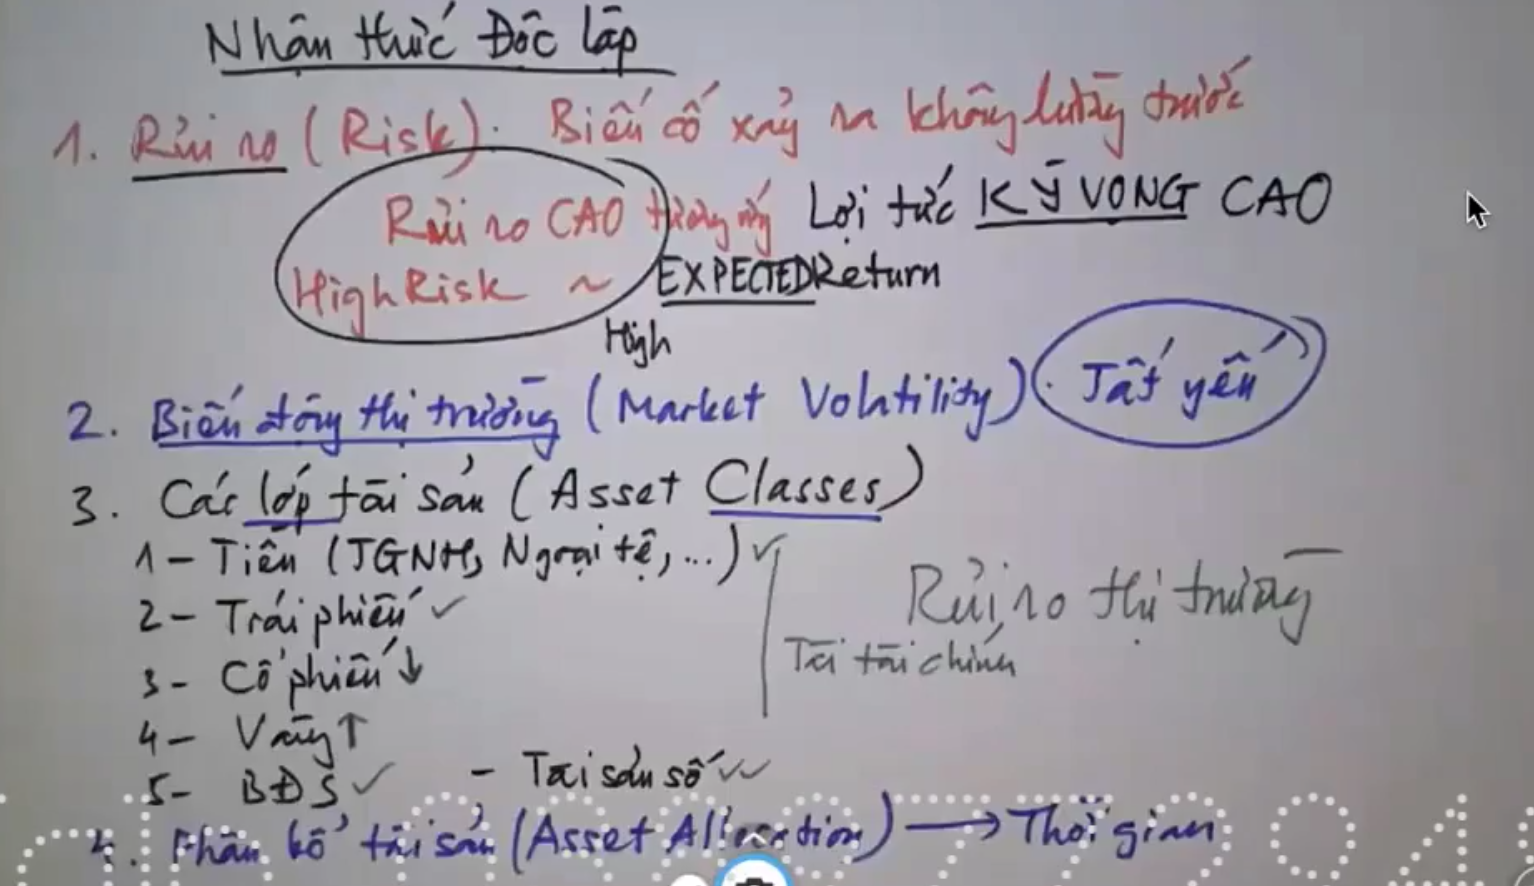 Nhận thức Độc lập
1. Rủi ro (Risk): Biến cố xảy ra không lường trước
Rủi ro CAO tương ứng Lợi tức KỲ VỌNG CAO
High Risk ~ EXPECTED Return
High
2. Biến động thị trường (Market Volatility). Tất yếu
3. Các lớp tài sản (Asset Classes)
1 - Tiền (TGNH, Ngoại tệ, ...) ✓
2 - Trái phiếu ✓
3 - Cổ phiếu ↓
4 - Vàng ↑
5 - BĐS ✓ - Tài sản số ✓✓
Rủi ro thị trường
tài chính
4. Phân bổ tài sản (Asset Allocation) → Thời gian